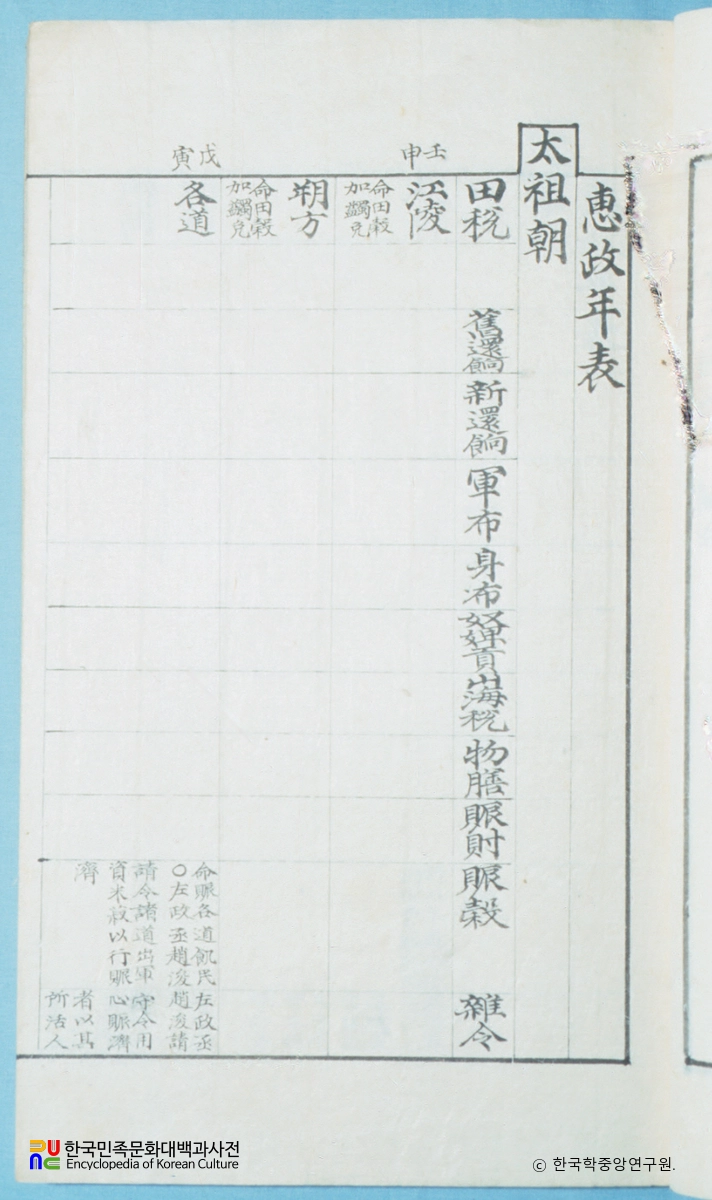 惠政年表
太祖朝
田稅
舊還餉
新還餉
軍布
身布
奴婢貢
山海稅
物膳
賑財
賑穀
雜令
壬申
江陵
命田穀
加蠲免
朔方
命田穀
加蠲免
戊寅
各道
命賑各道飢民
○左政丞趙浚
請令諸道出軍
資米菽以行賑
濟
左政丞
趙浚請
守令用
心賑濟
者以其
所活人
한국민족문화대백과사전
Encyclopedia of Korean Culture
© 한국학중앙연구원.